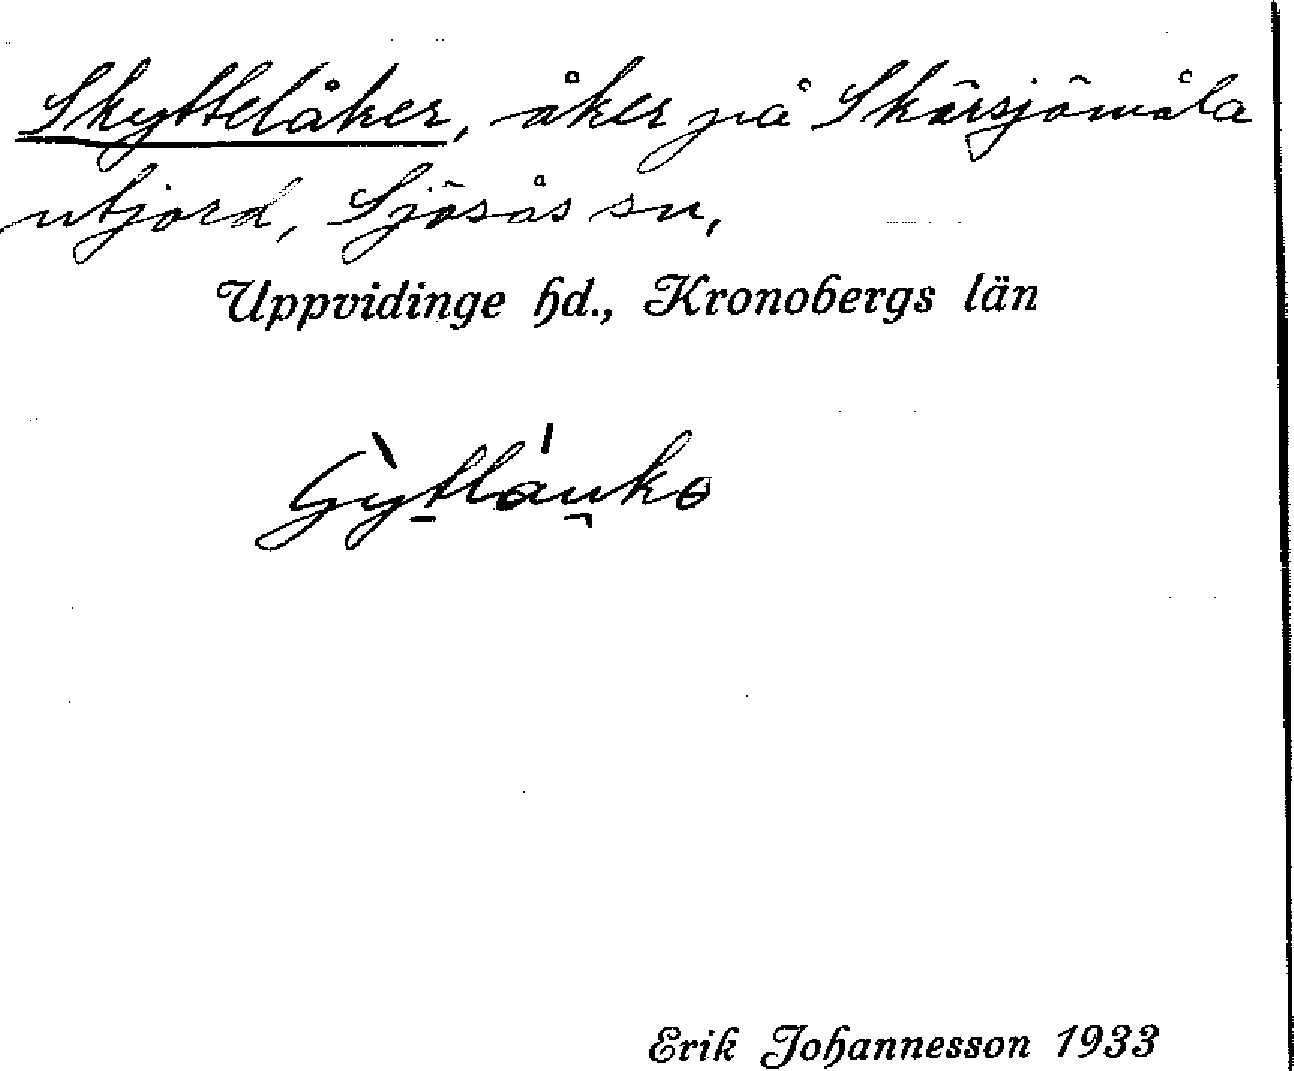 Skyttelåker, åker på Skärsjömåla
utjord, Sjösås sn,
Uppvidinge hd., Kronobergs län
Erik Johannesson 1933